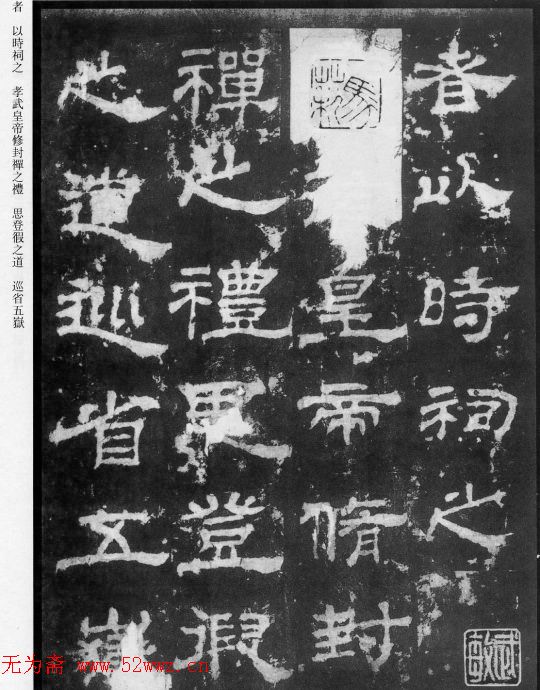 者以時祠之
皇帝脩封
禪之禮思登徦
之道巡省五嶽
者 以時祠之 孝武皇帝修封禪之禮 思登徦之道 巡省五嶽
无为斋 www.52wwz.cn